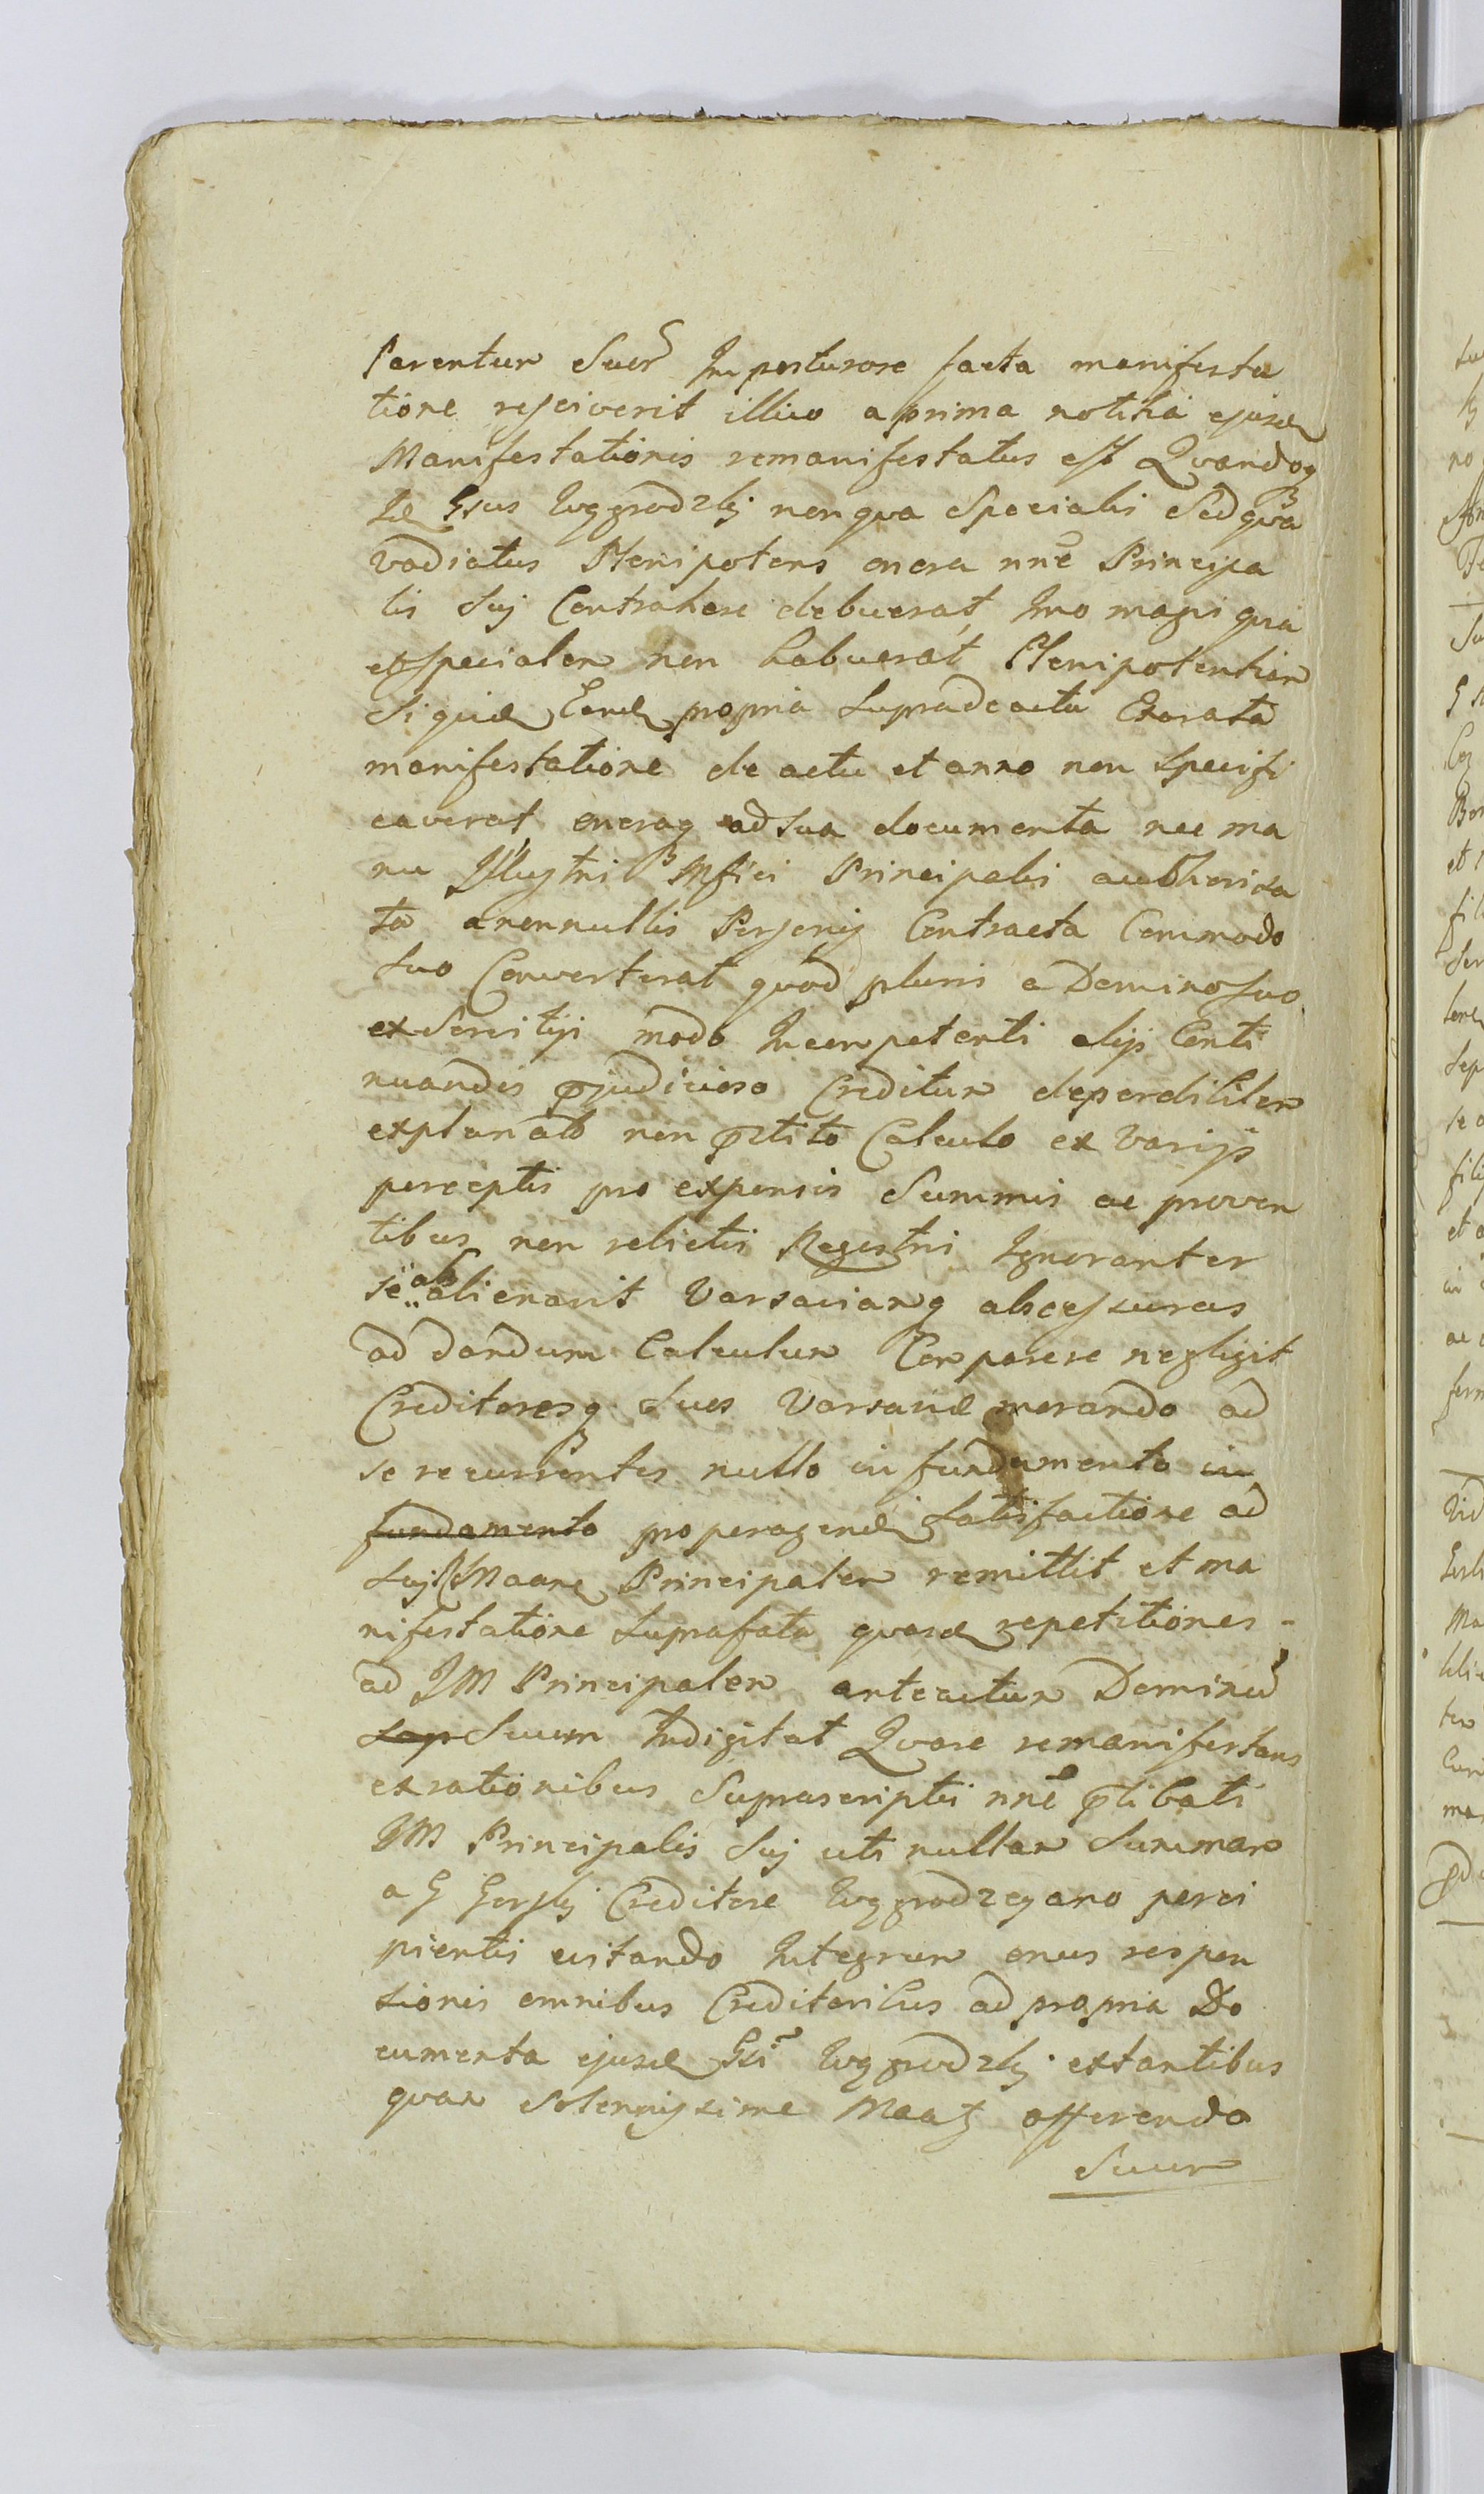 Parentum Suor Imposturose facta manifesta
tione resciverit illico a prima notitia ejusd
Manifestationis remanifestatus est Quandoq
Id Gsus Wygrodzkj non qva Specialis Sed qva
vadiatus Plenipotens onera nne Principa
lis Suj Contrahere debuerat Imo magis quia
et specialem non habuerat Plenipotentiam
Siquid Eand propria Supradeacta Exarata
manifestatione de actu et anno non specifi
caverat, oneraq ad sua documenta nec ma
nu Illustris Mfici Principalis authorisa
ta a nonnullis Personis Contracta Commodo
Suo Converterat quod pluris a Domino Suo
ex Servitijs modo Incompetenti alijs Conti
nuandis pjudicioso Creditum deperdibilem
explanato non pstito Calculo ex varijs
perceptis pro expensis Summis ac proven
tibus non relictis Registris Ignoranter
se ab alienavit Varsaviamq abscessurus
ad dandum Calculum Comparere negligit
Creditoresq Suos Varsavie morando ad
se recurrentes nullo in fundamento in
fundamento pro peragend Satisfactione ad
Suj Maare Principalem remittit et ma
nifestatione Suprafata quasd repetitiones -
ad JM Principalem anteactum Dominum
Sup Suum Indigitat Quare remanifestans
ex rationibus Suprascriptis nne plibati
JM Principalis Suj uti nullam Summam
a G Gorskj Creditore Wygrodzcyano perci
pientis evitando Integrum onus respon
sionis omnibus Creditoribus ad propria Do
cumenta ejusd Gsi Wygrodzkj extantibus
quam Solennissime Maatz offerendo
Suum